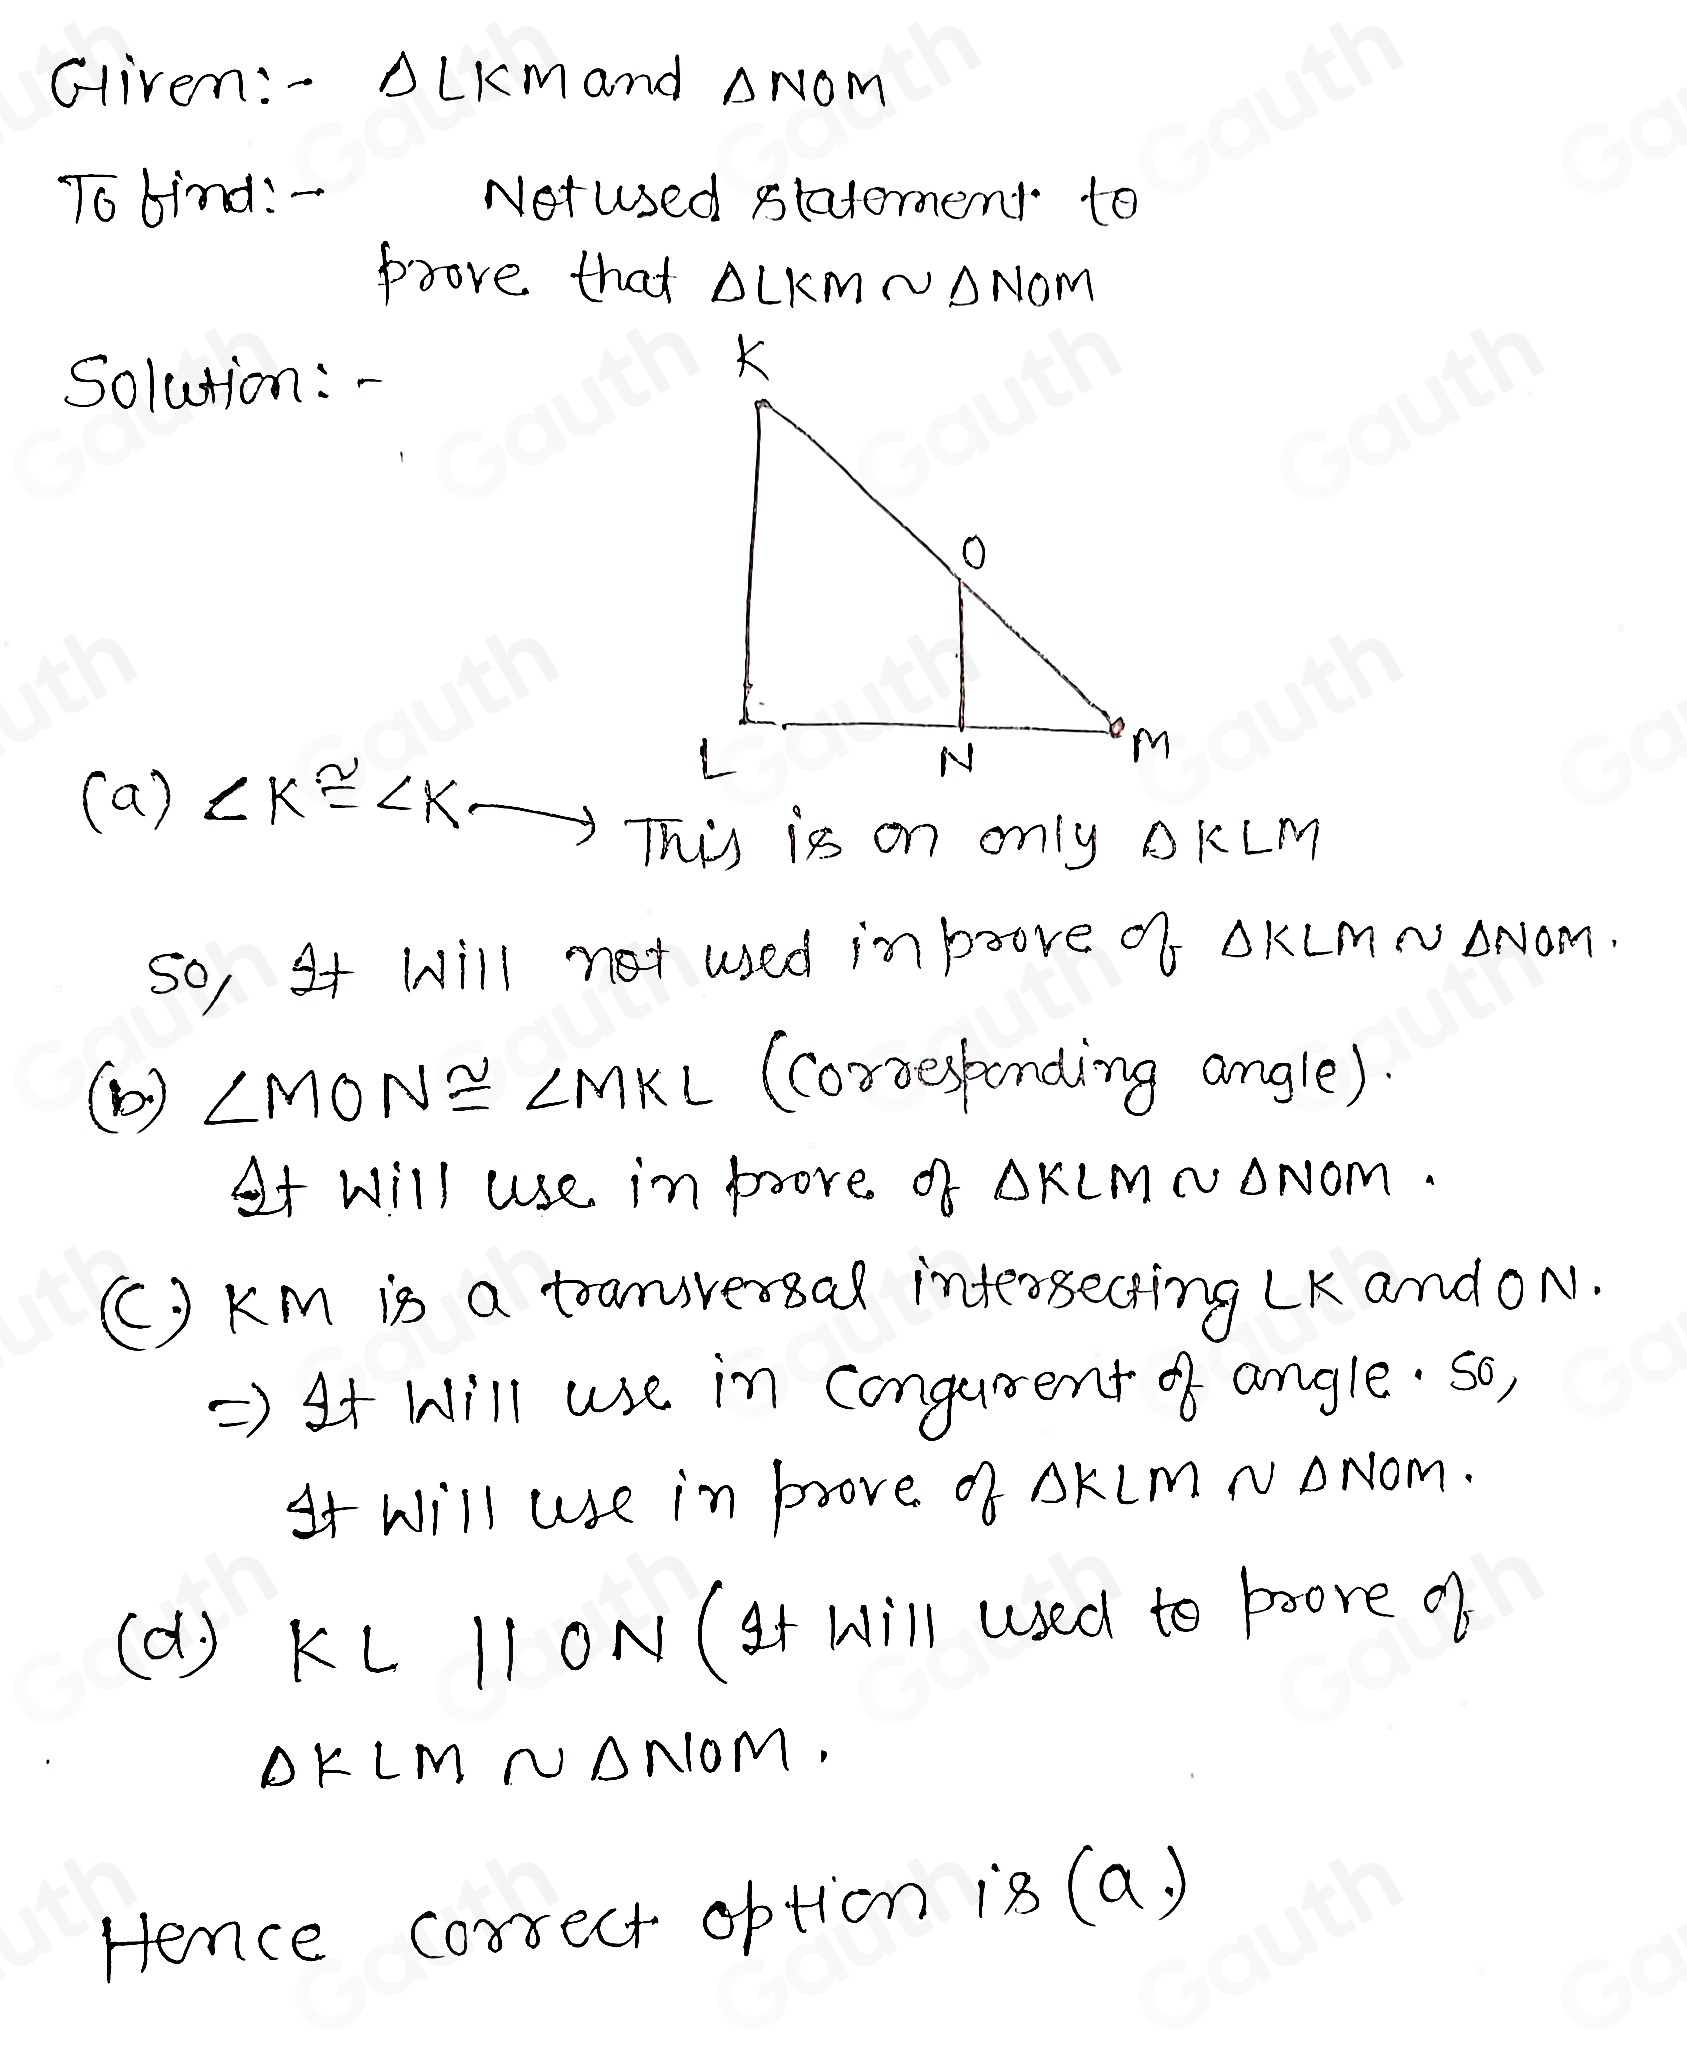 Given:- ΔLKM and ΔNOM
To find:- Not used statement to
prove that ΔLKM ~ ΔNOM
Solution:-
K
O
L
N
M
(a) ∠K ≅ ∠K → This is on only ΔKLM
so, It will not used in prove of ΔKLM ~ ΔNOM.
(b.) ∠MON ≅ ∠MKL (Corresponding angle).
It will use in prove of ΔKLM ~ ΔNOM.
(C.) KM is a transversal intersecting LK and ON.
=> It will use in congurent of angle. So,
It will use in prove of ΔKLM ~ ΔNOM.
(d.) KL || ON (It will used to prove of
ΔKLM ~ ΔNOM.
Hence correct option is (a.)